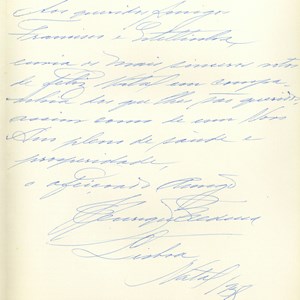 Aos queridos Amigos
Francisco e
envia o mais sincero voto
de feliz Natal em compa-
nhia dos que lhe são queridos
assim como de um Novo
Ano pleno de saúde e
prosperidade,
o afeiçoado Amigo
Lisboa
Natal